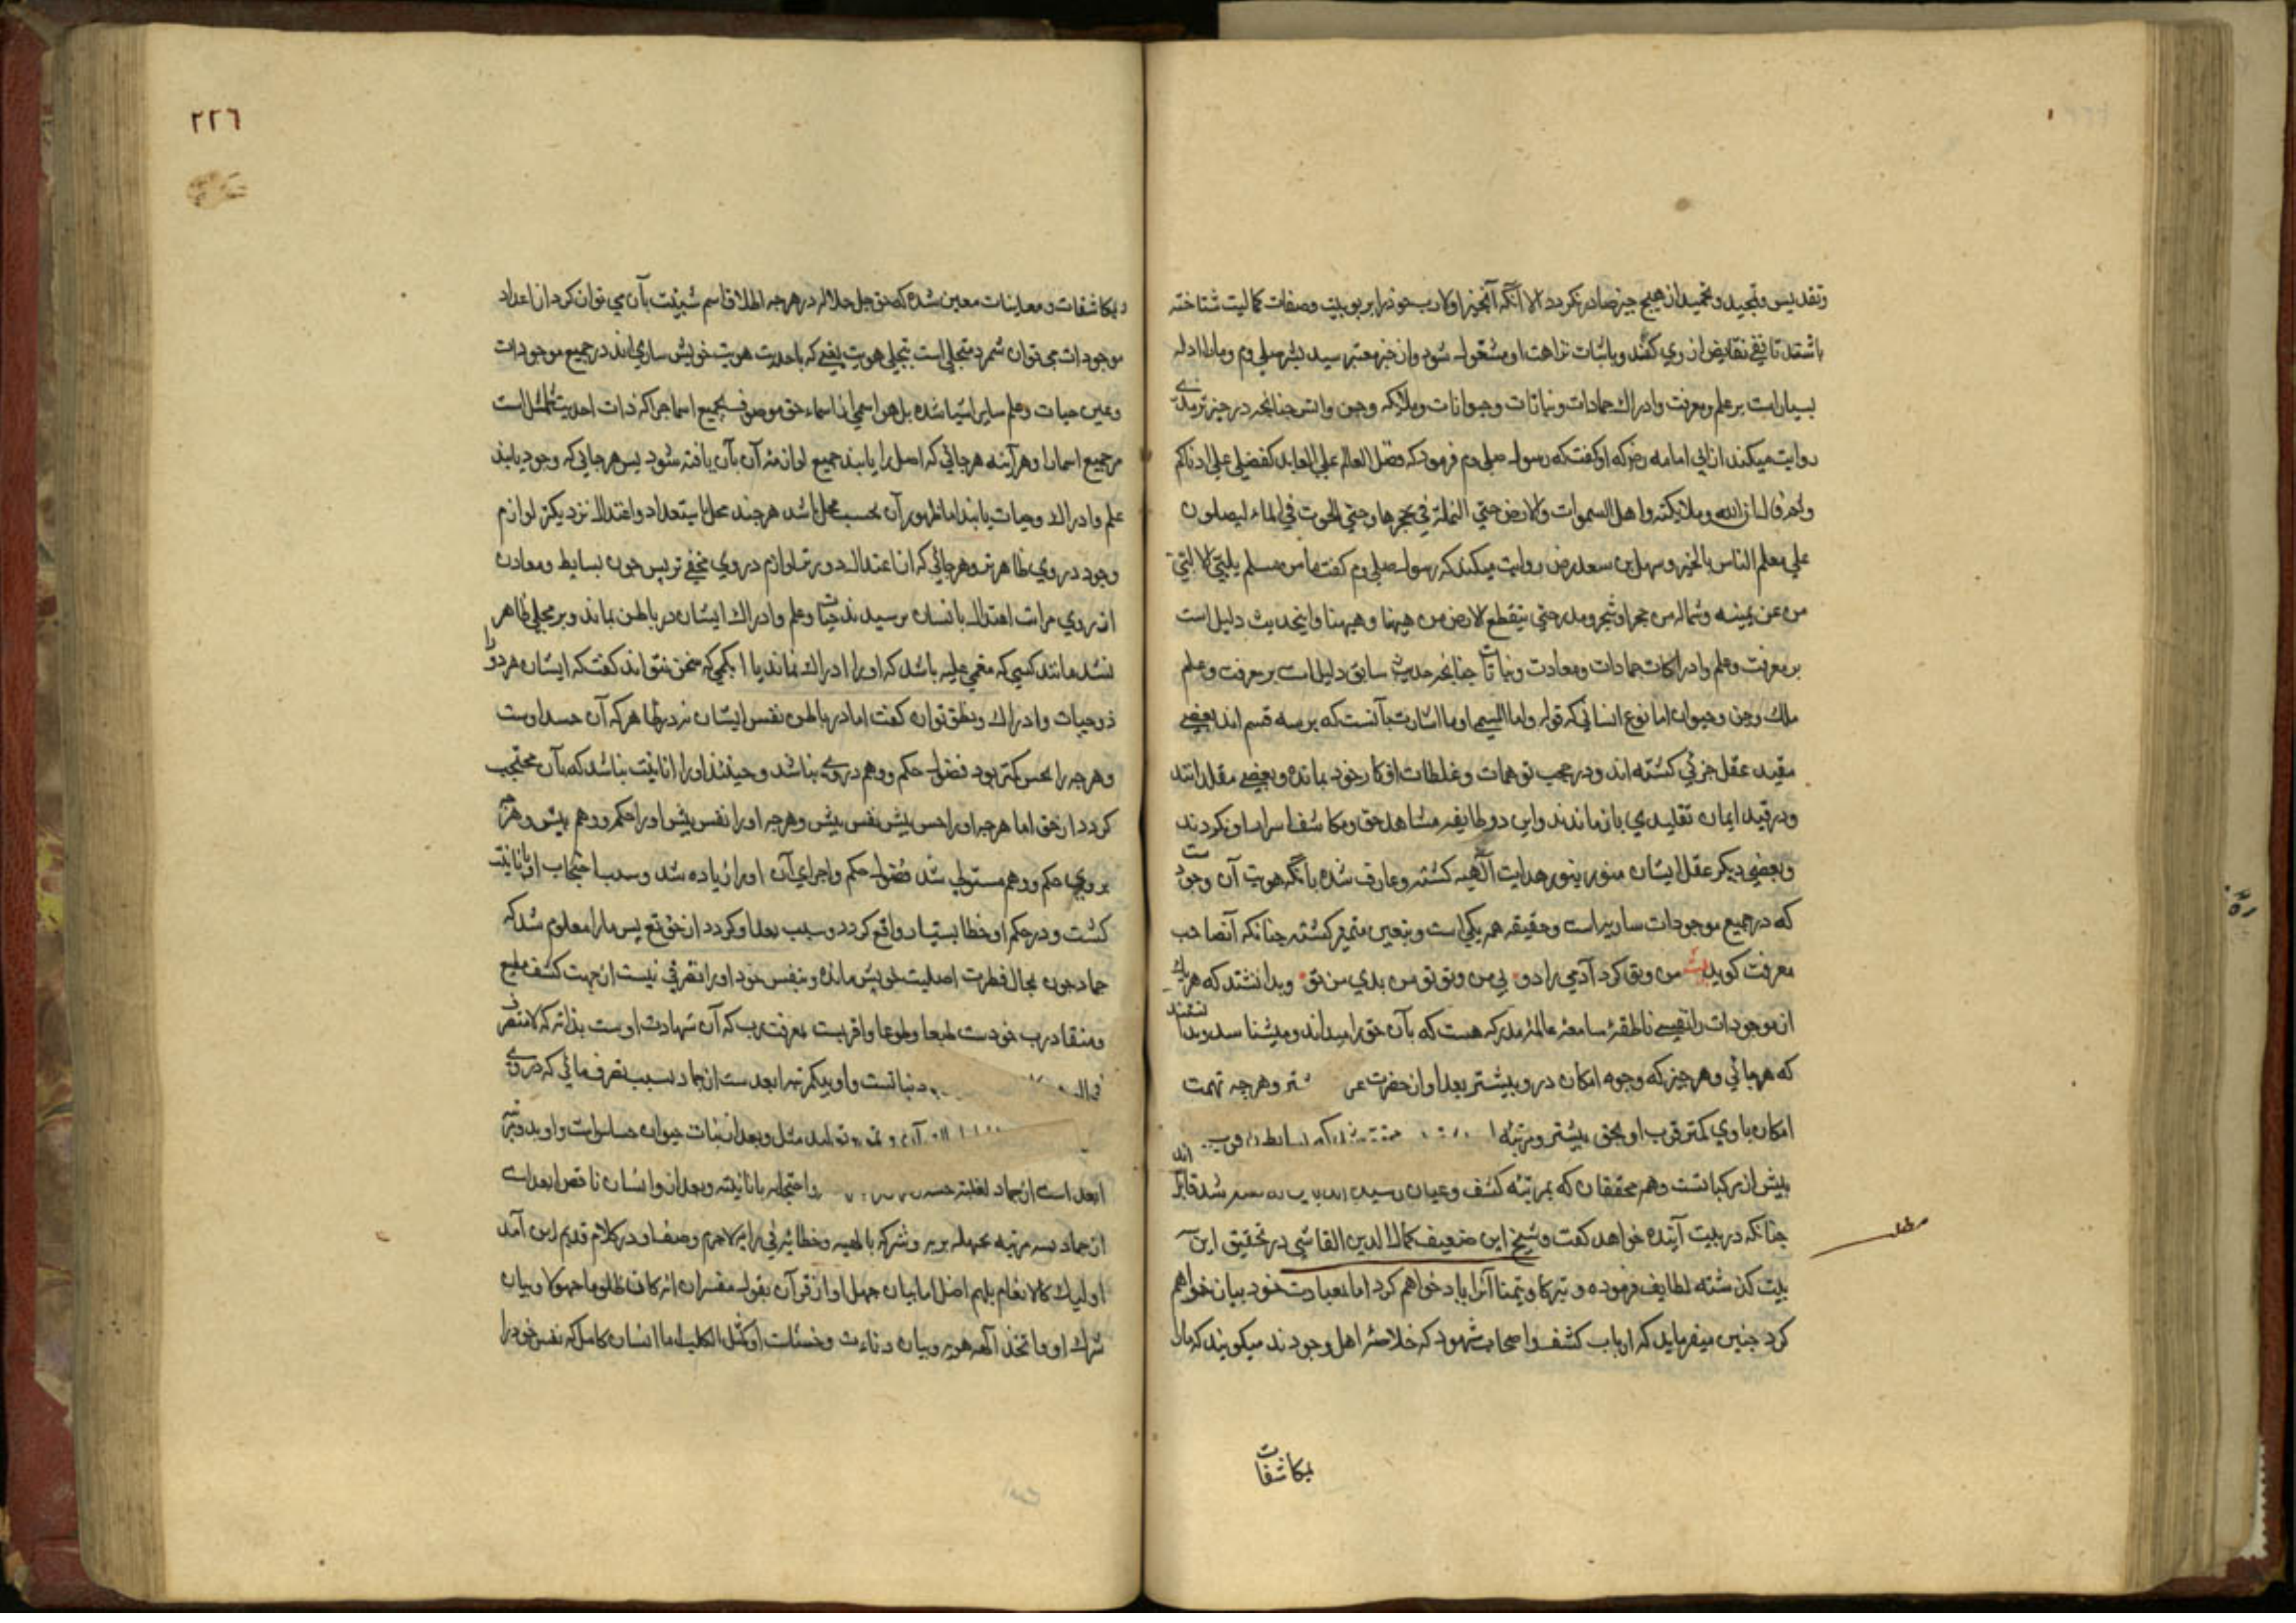 وتقدیس وتمجید و تحمید از هیچ چیز صادر نکردد الا آنکه آنچیز اولا رب خود را بربوبیت وصفات کمالیت شناخته
باشند تا نفی نقایض از وی کنند وباثبات نزاهت او مشغول شود واز خبر معتبر سید بشر صلی وم
بسیار است بر علم ومعرفت وادراك جمادات ونباتات وحیوانات وملائکه وجن وانس چنانچه در خبر ترمذی
روایت میکند از ابی امامه رضر که او کفت که رسول صلی وم فرمود که فضل العالم علی العابد کفضلی علی ادناکم
ان الله وملایکته واهل السموات والارض حتی النملة فی جحرها وحتی الحوت فی الماء لیصلون
علی معلم الناس بالخیر و سهل بن سعد رض روایت میکند که رسول صلی وم کفت ما من مسلم یلبی الا لبی
من عن یمینه وشماله من حجر او شجر ومدر حتی ینقطع الارض من هیهنا وهیهنا واینحدیث دلیل است
بر معرفت وعلم وادراکات جمادات ومعادن ونباتات چنانچه حدیث سابق دلیل است بر معرفت وعلم
ملك وجن وحیوان اما نوع انسانی که قوله واما المسمی اوما اشارت بآنست که بر سه قسم اند بعضی
مقید عقل جزئی کشته اند ودر حجب توهمات وغلطات افکار خود بمانده وبعضی مقلدانند
ودر قید ایمان تقلیدی بازماندند واین دو طایفه مشاهد حق ومکاشف اسرار او نکردند
وبعضی دیکر عقل ایشان منور بنور هدایت الهیه کشته وعارف شده بآنکه هویت آن وجودست
که در جمیع موجودات ساریست وحقیقه همه یکی است وبتعین متمیز کشته چنانکه آنصاحب
معرفت کوید بیت من وتو کرد آدمی را دو بی من وتو تو من بدی من تو وبدانند که هر یك
از موجودات را نفسی ناطقۀ سامعۀ عالمۀ مدرکه هست که بآن حق را میداند ومیشناسد وبدانستند
که هر جائی وهر چیز که وجوه امکان در و بیشتر بعد او از حضرت وهر چه تهمت
امکان با وی کمتر قرب او بحق بیشتر ومرتبه
بیش از مرکباتست وهم محققان که بمرتبۀ کشف وعیان رسیده اند
چنانکه در بیت آینده خواهد کفت وشیخ این ضعیف کمال الدین القاشی در تحقیق این
مطلب
بیت کذشته لطایف فرموده و تبرکا وتیمنا آنرا یاد خواهم کرد اما بعبارت خود بیان خواهم
کرد چنین میفرماید که ارباب کشف واصحاب شهود که خلاصۀ اهل وجودند میکویند که مارا
بمکاشفات
٢٢٦
بمکاشفات ومعاینات معین شده که حق جل جلاله در هر چه اطلاق اسم شیئیت بآن می توان کرد از اعداد
موجودات می توان شمرد متجلی است بتجلی هویت یعنی که باحدیت هویت خویش ساری اند در جمیع موجودات
وعین حیات وعلم سایر اشیا شده بل هر اسمی از اسماء حق موصوف بجمیع اسما چرا که ذات احدیت شامل است
مر جمیع اسما را وهر آینه هر جائی که اصل را یابند جمیع لوازمۀ آن بآن یافته شود پس هر جایی که وجود یابند
علم وادراك وحیات یابند اما ظهور آن بحسب محل باشد هر چند محل باستعداد واعتدال نزدیکتر لوازم
وجود در وی ظاهرتر وهر جائی که از اعتدال دورتر لوازم در وی مخفی تر پس چون بسایط ومعادن
از روی مراتب اعتدال بانسان نرسیدند حیات وعلم وادراك ایشان در باطن بماند وبر مجلی ظاهر
نشد مانند کسی که مغمی علیه باشد که او را ادراك نماند یا ابکمی که سخن نتواند کفت که ایشان هر دو را
ذو حیات وادراك ونطق توان کفت اما در باطن نفس ایشان نه در ظاهر که آن جسد اوست
وهر چه را حس کمتر بود فضول حکم ووهم در وی نباشد وحینئذ او را انانیت نباشد که بآن محتجب
کردد از حق اما هر چه او را حس بیش نفس بیش وهر چه او را نفس بیش او را حکم ووهم بیش وهر که
بر وی حکم ووهم مستولی شد فضول حکم واجرای آن او را زیاده شد وسبب احتجاب او بانانیت
کشت ودر حکم او خطا بسیار واقع کردد وسبب بعد او کردد از حق تع پس ما را معلوم شد که
جماد چون بحال فطرت اصلیت خویش مانده وبنفس خود او را تصرفی نیست از جهت کشف مطیع
ومنقاد رب خودست طبعا وطوعا واقربست بمعرفت رب که آن شهادت اوست بذاته که لا متصرف
نباتست واو بیکمرتبه ابعدست از جماد بسبب تصرف مائی که در وی
تولید مثل وبعد از نبات حیوان حساس است واو بدو مرتبه
ابعد است از جماد لغلبۀ حسه واحتجابه بانانیته وبعد از و انسان ناقص ابعد است
از جماد بسه مرتبه بجهله بربه وشرکه بالهیه وخطائه فی رایه لاجرم وصف او در کلام قدیم این آمد
اولئك کالانعام بل هم اضل اما بیان جهل او از قرآن بقول مفسران انه کان ظلوما جهولا وبیان
شرك او واتخذ الهه هویه وبیان دناءت وخسات او کمثل الکلب اما انسان کامل که نفس خود را